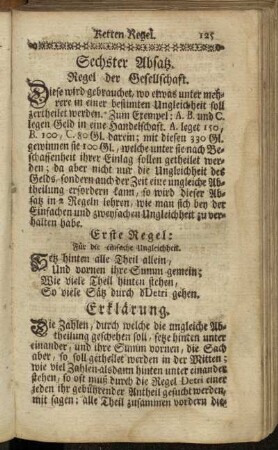 Ketten Regel. 125
Sechster Absatz.
Regel der Gesellschaft.
Diese wird gebrauchet, wo etwas unter meh-
rere in einer bestimten Ungleichheit soll
zertheilet werden. Zum Exempel: A. B. und C.
legen Geld in eine Handelschaft. A. leget 150,
B. 100, C. 80 Gl. darein; mit diesen 330 Gl.
gewinnen sie 100 Gl., welche unter sie nach Be-
schaffenheit ihrer Einlag sollen getheilet wer-
den; da aber nicht nur die Ungleichheit des
Gelds, sondern auch der Zeit eine ungleiche Ab-
theilung erfordern kann, so wird dieser Ab-
satz in 2 Regeln lehren, wie man sich bey der
Einfachen und zweyfachen Ungleichheit zu ver-
halten habe.
Erste Regel:
Für die einfache Ungleichheit.
Setz hinten alle Theil allein,
Und vornen ihre Summ gemein;
Wie viele Theil hinten stehen,
So viele Sätz durch dDetri gehen.
Erklärung.
Die Zahlen, durch welche die ungleiche Ab-
theilung geschehen soll, setze hinten unter
einander, und ihre Summ vornen, die Sach
aber, so soll getheilet werden in der Mitten;
wie viel Zahlen alsdann hinten unter einander
stehen, so oft muß durch die Regel Detri einer
jeden ihr gebührender Antheil gesucht werden,
mit sagen: alle Theil zusammen vordern die